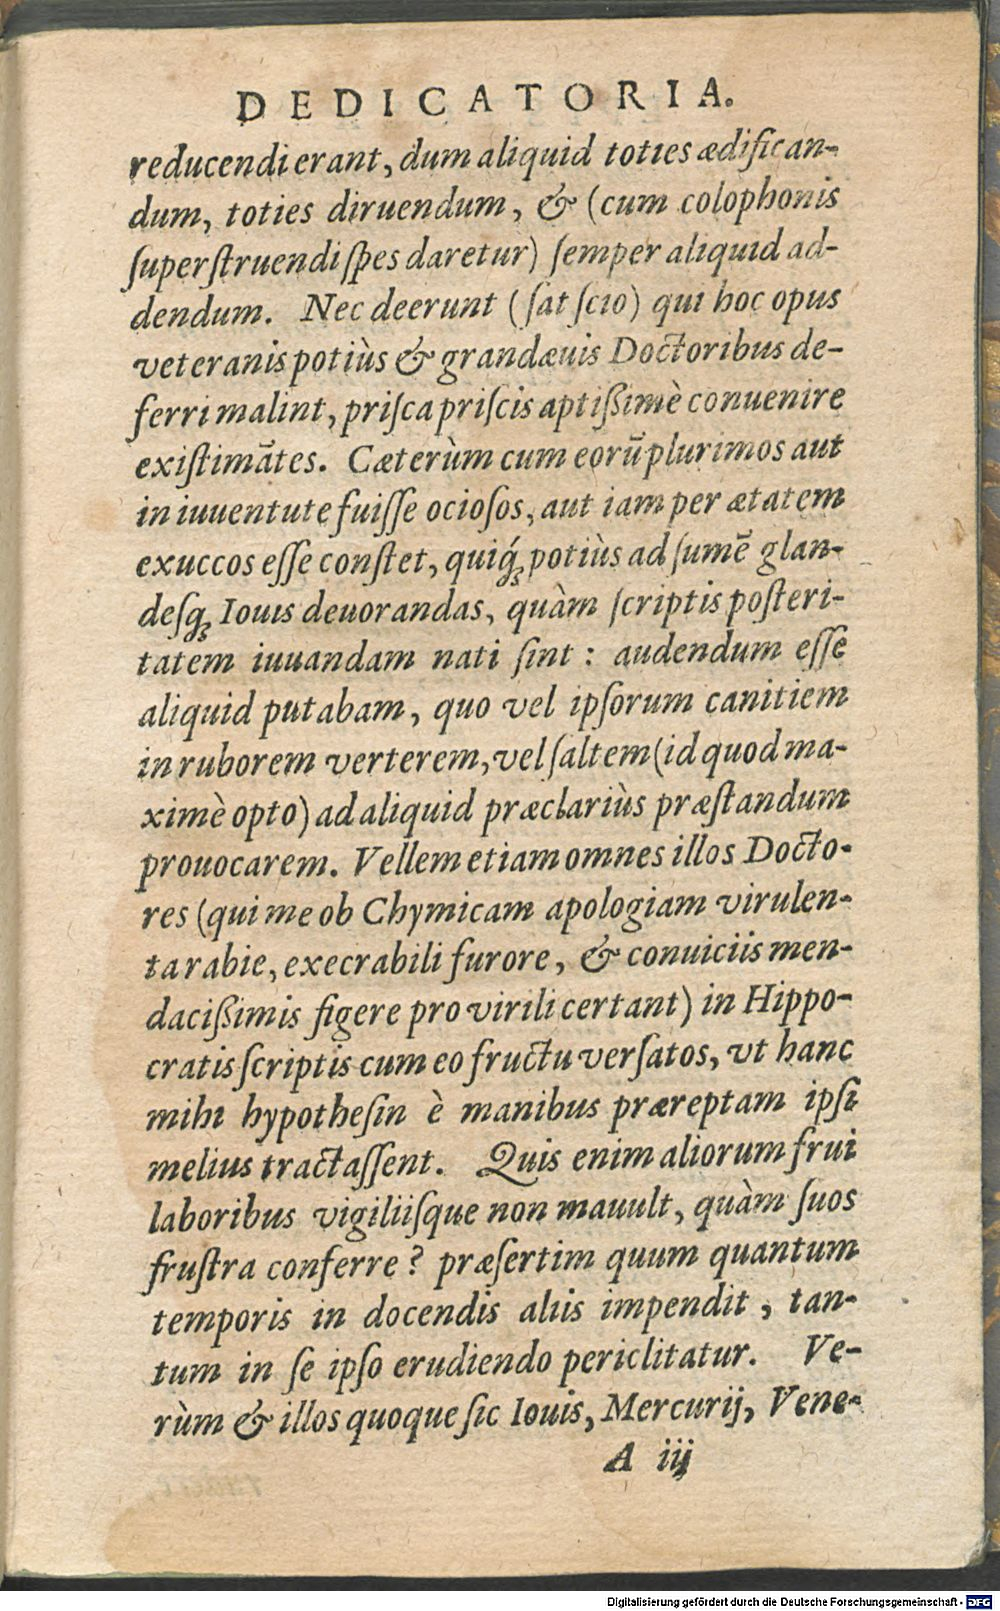 DEDICATORIA.
reducendi erant, dum aliquid toties ædifican-
dum, toties diruendum, & (cum colophonis
ſuperſtruendi ſpes daretur) ſemper aliquid ad-
dendum. Nec deerunt (ſat ſcio) qui hoc opus
veteranis potiùs & grandæuis Doctoribus de-
ferri malint, priſca priſcis aptißimè conuenire
exiſtimãtes. Cæterùm cum eorũ plurimos aut
in iuuentute fuiſſe ocioſos, aut iam per ætatem
exuccos eſſe conſtet, quiq́ꝫ potiùs ad ſumẽ glan-
deſqꝫ Iouis deuorandas, quàm ſcriptis poſteri-
tatem iuuandam nati ſint: audendum eſſe
aliquid putabam, quo vel ipſorum canitiem
in ruborem verterem, vel ſaltem (id quod ma-
ximè opto) ad aliquid præclariùs præſtandum
prouocarem. Vellem etiam omnes illos Docto-
res (qui me ob Chymicam apologiam virulen-
ta rabie, execrabili furore, & conuiciis men-
dacißimis figere pro virili certant) in Hippo-
cratis ſcriptis cum eo fructu verſatos, vt hanc
mihi hypotheſin è manibus præreptam ipſi
melius tractaſſent. Quis enim aliorum frui
laboribus vigiliiſque non mauult, quàm ſuos
fruſtra conferre? præſertim quum quantum
temporis in docendis aliis impendit, tan-
tum in ſe ipſo erudiendo periclitatur. Ve-
rùm & illos quoque ſic Iouis, Mercurij, Vene-
A iij
Digitalisierung gefördert durch die Deutsche Forschungsgemeinschaft - DFG